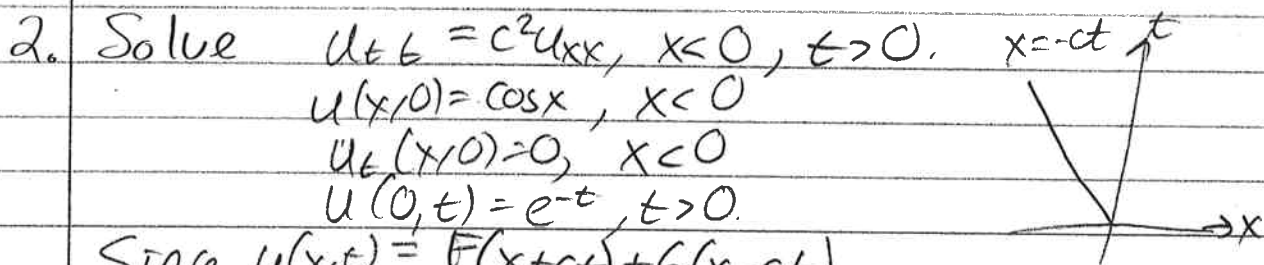 2. Solve u_tt = c²u_xx, x<0, t>0. x=-ct t
u(x,0)=cosx, x<0
u_t(x,0)=0, x<0
u(0,t)=e^-t, t>0.
x
Since u(x,t) = F(x+ct)+G(x-ct)